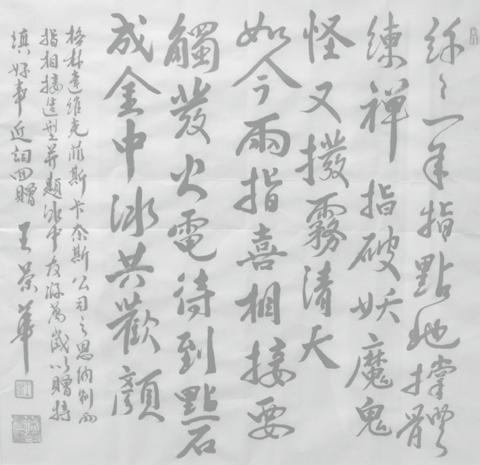 一手指點地撐體
練禪指破妖魔鬼
怪又撥霧清天
如今兩指喜相接要
觸發火電待到點石
成金中冰共歡顏
格林達維克菲斯卡奈斯公司之思納制兩
指相接造型并題冰中友好萬歲以贈特
填好事近詞回贈 王榮華